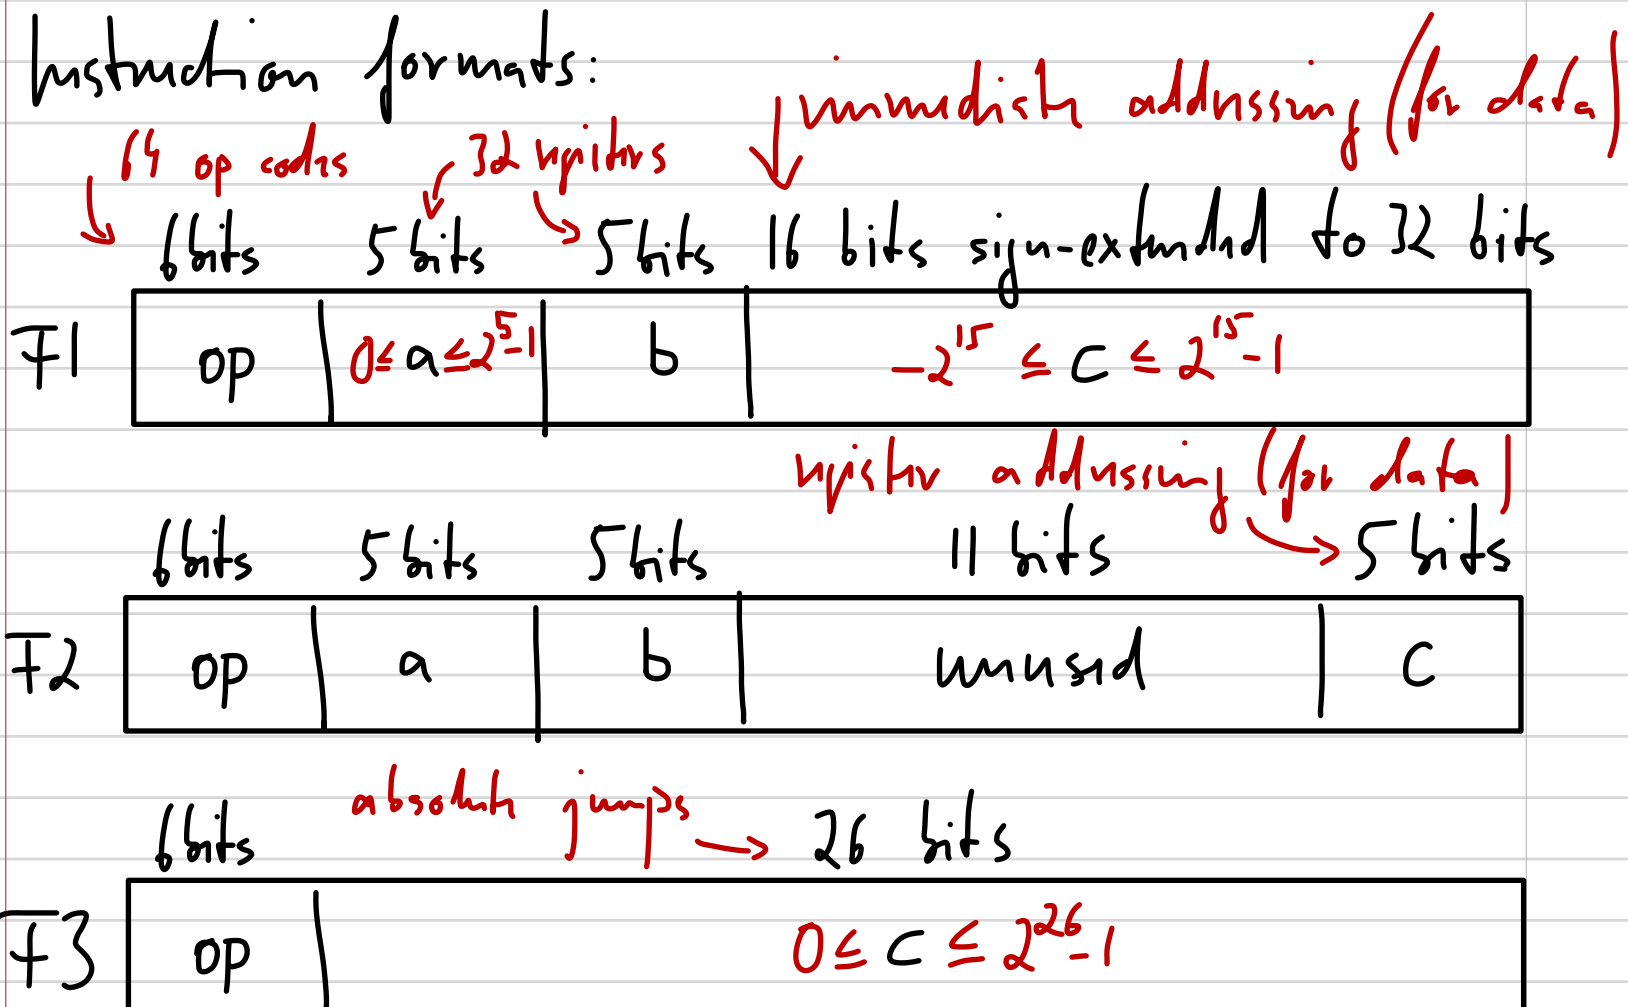 Instruction formats:
immediate addressing (for data)
64 op codes 32 registers
6 bits 5 bits 5 bits 16 bits sign-extended to 32 bits
F1 op 0 ≤ a ≤ 2^5-1 b -2^15 ≤ c ≤ 2^15-1
register addressing (for data)
6 bits 5 bits 5 bits 11 bits 5 bits
F2 op a b unused c
absolute jumps
6 bits 26 bits
F3 op 0 ≤ c ≤ 2^26-1